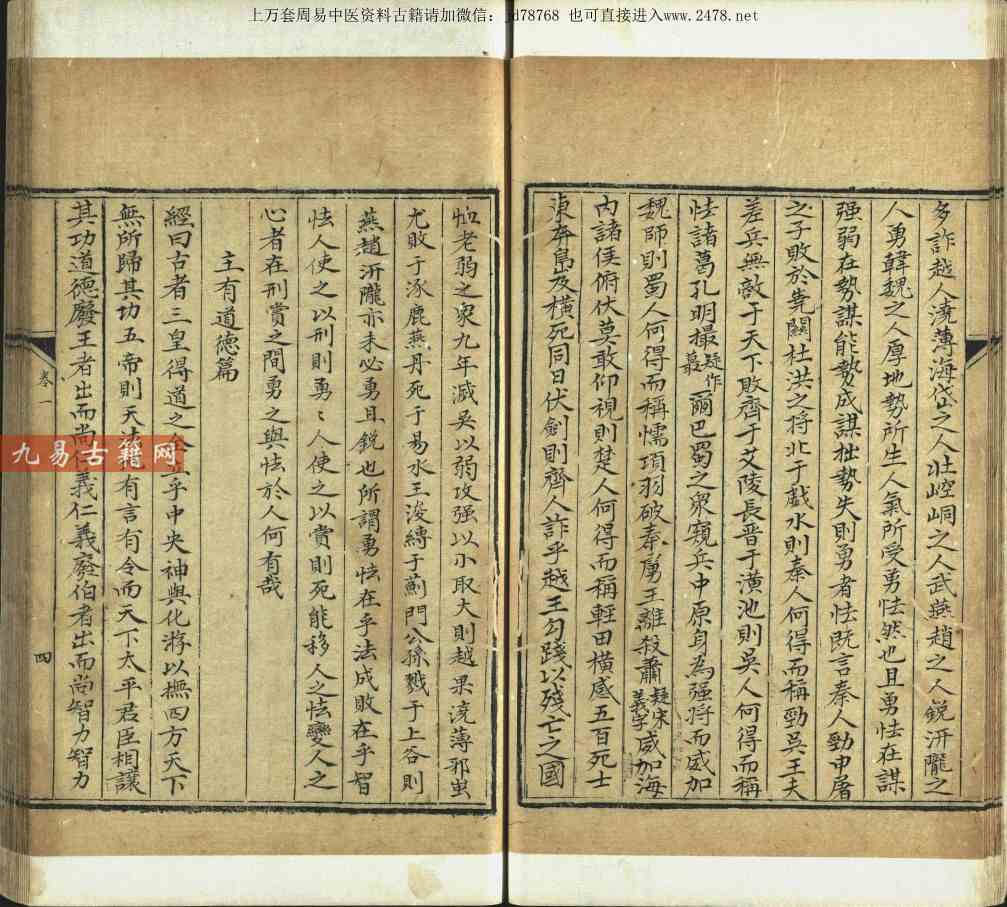 上万套周易中医资料古籍请加微信：jd78768 也可直接进入www.2478.net
多詐越人澆薄海岱之人壯崆峒之人武燕趙之人銳汧隴之
人勇韓魏之人厚地勢所生人氣所受勇怯然也且勇怯在謀
强弱在勢謀能勢成謀拙勢失則勇者怯既言秦人勁申屠
之子敗於嶢關杜洪之将北于戲水則秦人何得而稱勁吳王夫
差兵無敵于天下敗齊于艾陵長晋于潢池則吳人何得而稱
怯諸葛孔明撮疑作蕞爾巴蜀之衆窺兵中原身為强将而威加
魏師則蜀人何得而稱懦項羽破秦虜王離殺蕭疑宋義字威加海
内諸侯俯伏莫敢仰視則楚人何得而稱輕田橫感五百死士
東奔島及橫死同日伏劍則齊人詐乎越王勾踐以殘亡之國
恤老弱之衆九年滅吳以弱攻强以小取大則越果澆薄邪蚩
尤敗于涿鹿燕丹死于易水王浚縳于薊門公孫戮于上谷則
燕趙汧隴亦未必勇且銳也所謂勇怯在乎法成敗在乎智
怯人使之以刑則勇〻人使之以賞則死能移人之怯變人之
心者在刑賞之間勇之與怯於人何有哉
主有道德篇
經曰古者三皇得道之 乎中央神與化游以撫四方天下
無所歸其功五帝則天 有言有令而天下太平君臣相讓
其功道德廢王者出而尚仁義仁義廢伯者出而尚智力智力
卷一
四
九易古籍网